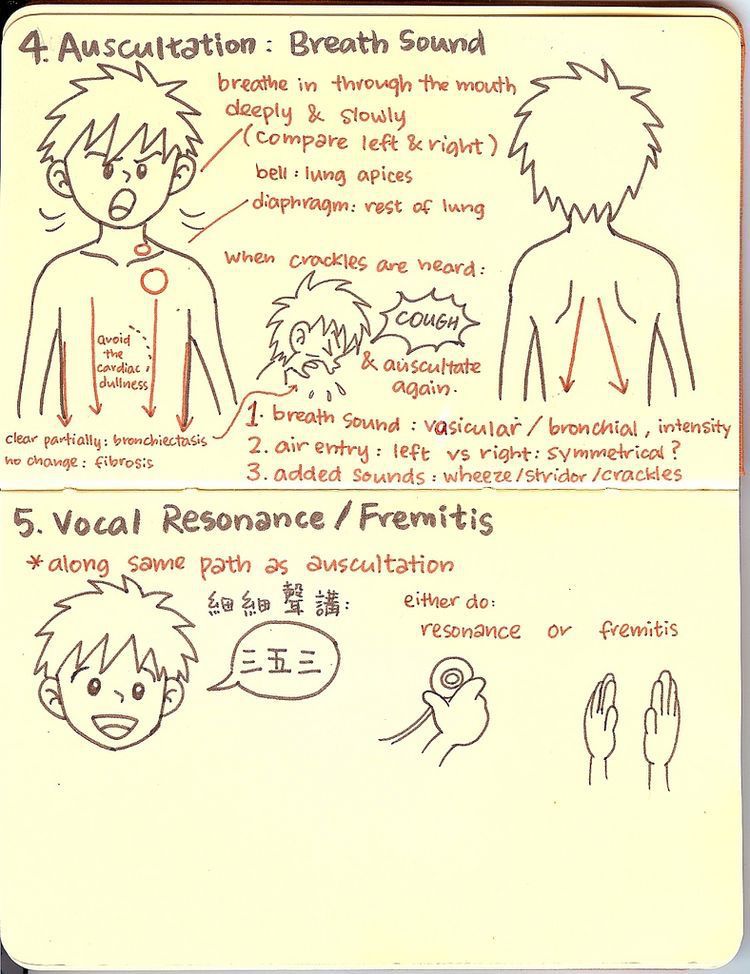 4. Auscultation: Breath Sound
breathe in through the mouth
deeply & slowly
(compare left & right)
bell: lung apices
diaphragm: rest of lung
when crackles are heard:
COUGH
& auscultate
again.
avoid
the
cardiac
dullness
clear partially: bronchiectasis
no change: fibrosis
1. breath sound: vasicular / bronchial, intensity
2. air entry: left vs right: symmetrical?
3. added sounds: wheeze/stridor/crackles
5. Vocal Resonance/Fremitis
*along same path as auscultation
細細聲講:
三五三
either do:
resonance or fremitis